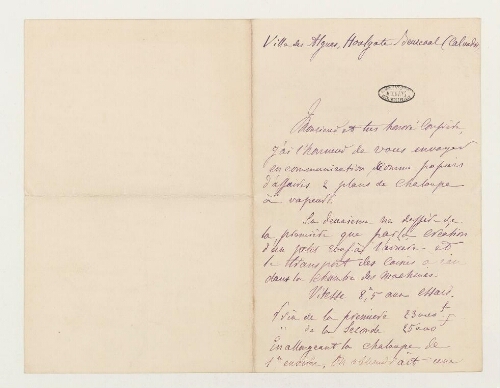 Villa des Algues, Houlgate Beuzeval (Calvados
Monsieur et très honoré Confrère,
J'ai l'honneur de vous envoyer
en communication, comme papiers
d'affaires 2 plans de chaloupe
à vapeur.
La deuxième ne diffère de
la première que par la création
d'un à l'arrière et
le transport des caisses à eau
dans la chambre des machines.
Vitesse 8,5 aux essais.
Prix de la première 23
" de la seconde 25
En allongeant la chaloupe de
1m environ, on une